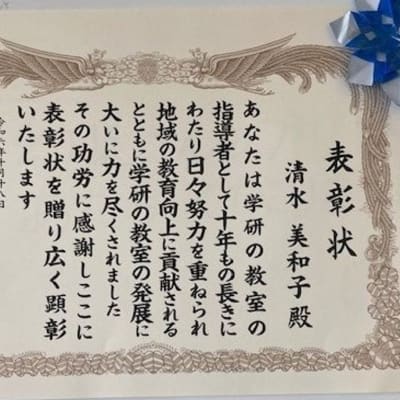 表彰状
清水 美和子 殿
あなたは学研の教室の
指導者として十年もの長きに
わたり日々努力を重ねられ
地域の教育向上に貢献される
とともに学研の教室の発展に
大いに力を尽くされました
その功労に感謝しここに
表彰状を贈り広く顕彰
いたします